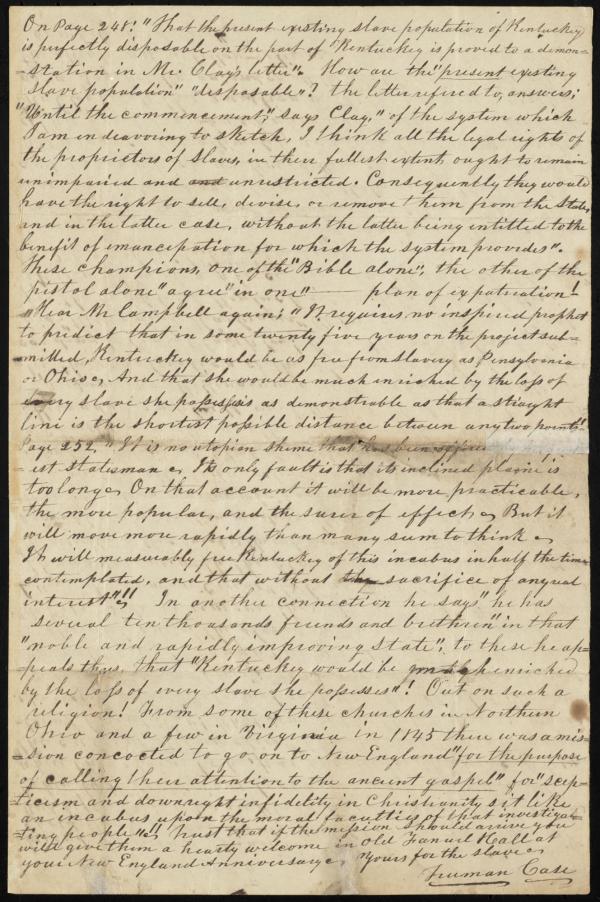 On Page 248! "That the present existing slave population of Kentuckey
is perfectly disposable on the part of Kentuckey is proved to a demon=
=stration in Mr. Clay's letter". How are the "present existing
slave population" "disposable"? the letter refered to, answers;
"Until the commencement," says Clay, "of the system which
I am endeavoring to sketch, I think all the legal rights of
the proprietors of slaves, in their fullest extent ought to remain
unimpaired and and unrestricted. Consequently they would
have the right to sell, devise, or remove them from the State,
and in the latter case, without the latter being entitled to the
benefit of emancipation for which the system provides".
These champions, one of the "Bible alone", the other of the
pistol alone "agree" in one" —— plan of expatriation!
"Hear Mr Campbell again; "It requires no inspired prophet
to predict that in some twenty five years on the project sub=
=mitted, Kentuckey would be as free from slavery as Pensylvania
or Ohio. And that she would be much enriched by the loss of
every slave she possess is as demonstrable as that a straight
line is the shortest possible distance between any two points"!
Page 252, "It is no utopian sheme that has been
est statesman. Its only fault is that its inclined plaine is
too long. On that account it will be more practicable,
the more popular, and the surer of effect. But it
will move more rapidly than many seem to think.
It will measureably free Kentuckey of this incubus in half the time
contemplated, and that without the sacrifice of any real
interest"!! In another connection he says "he has
several ten thousands friends and brethren" in that
"noble and rapidly improving state", to these he ap=
=peals thus, that "Kentuckey would be much enriched
by the loss of every slave she possesses"! Out on such a
religion! From some of these churches in Northern
Ohio and a few in Virginia in 1845 there was a mis=
=sion concocted to go on to New England "for the purpose
of calling their attention to the ancient gospel" for "scep=
=ticism and downright infidelity in Christianity sit like
an incubus upon the moral faculties of that investigat=
=ing people"!! Trust that if the mission should arrive you
will give them a hearty welcome in Old Fanuel Hall at
your New England Anniversary. Yours for the slave.
Truman Case